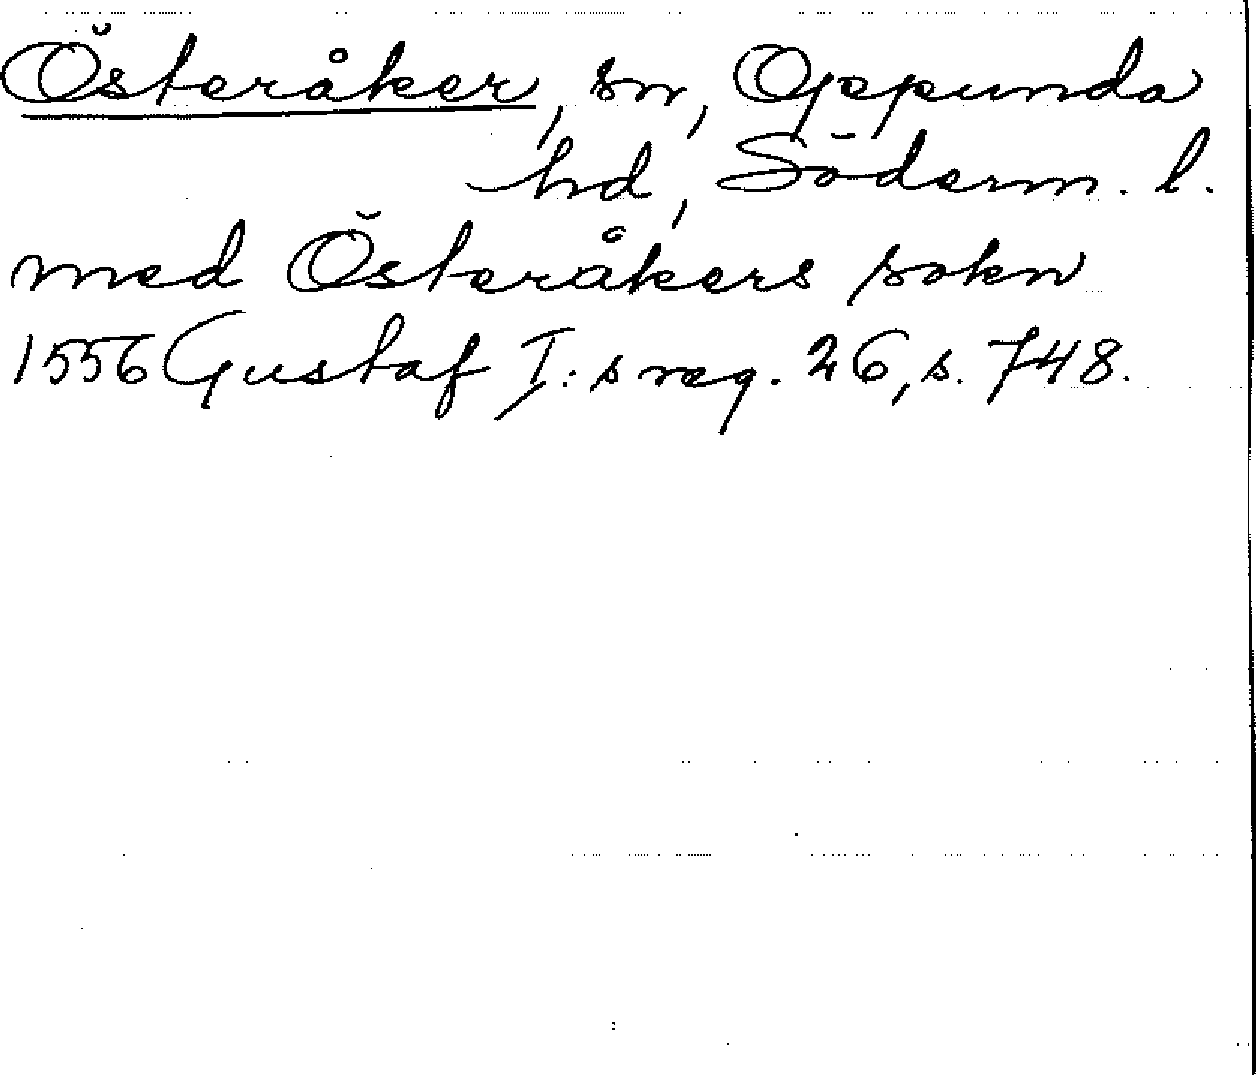 Österåker, sn, Oppunda
hd, Söderm. l.
med Österåkers sokn
1556 Gustaf I:s reg. 26, s. 748.